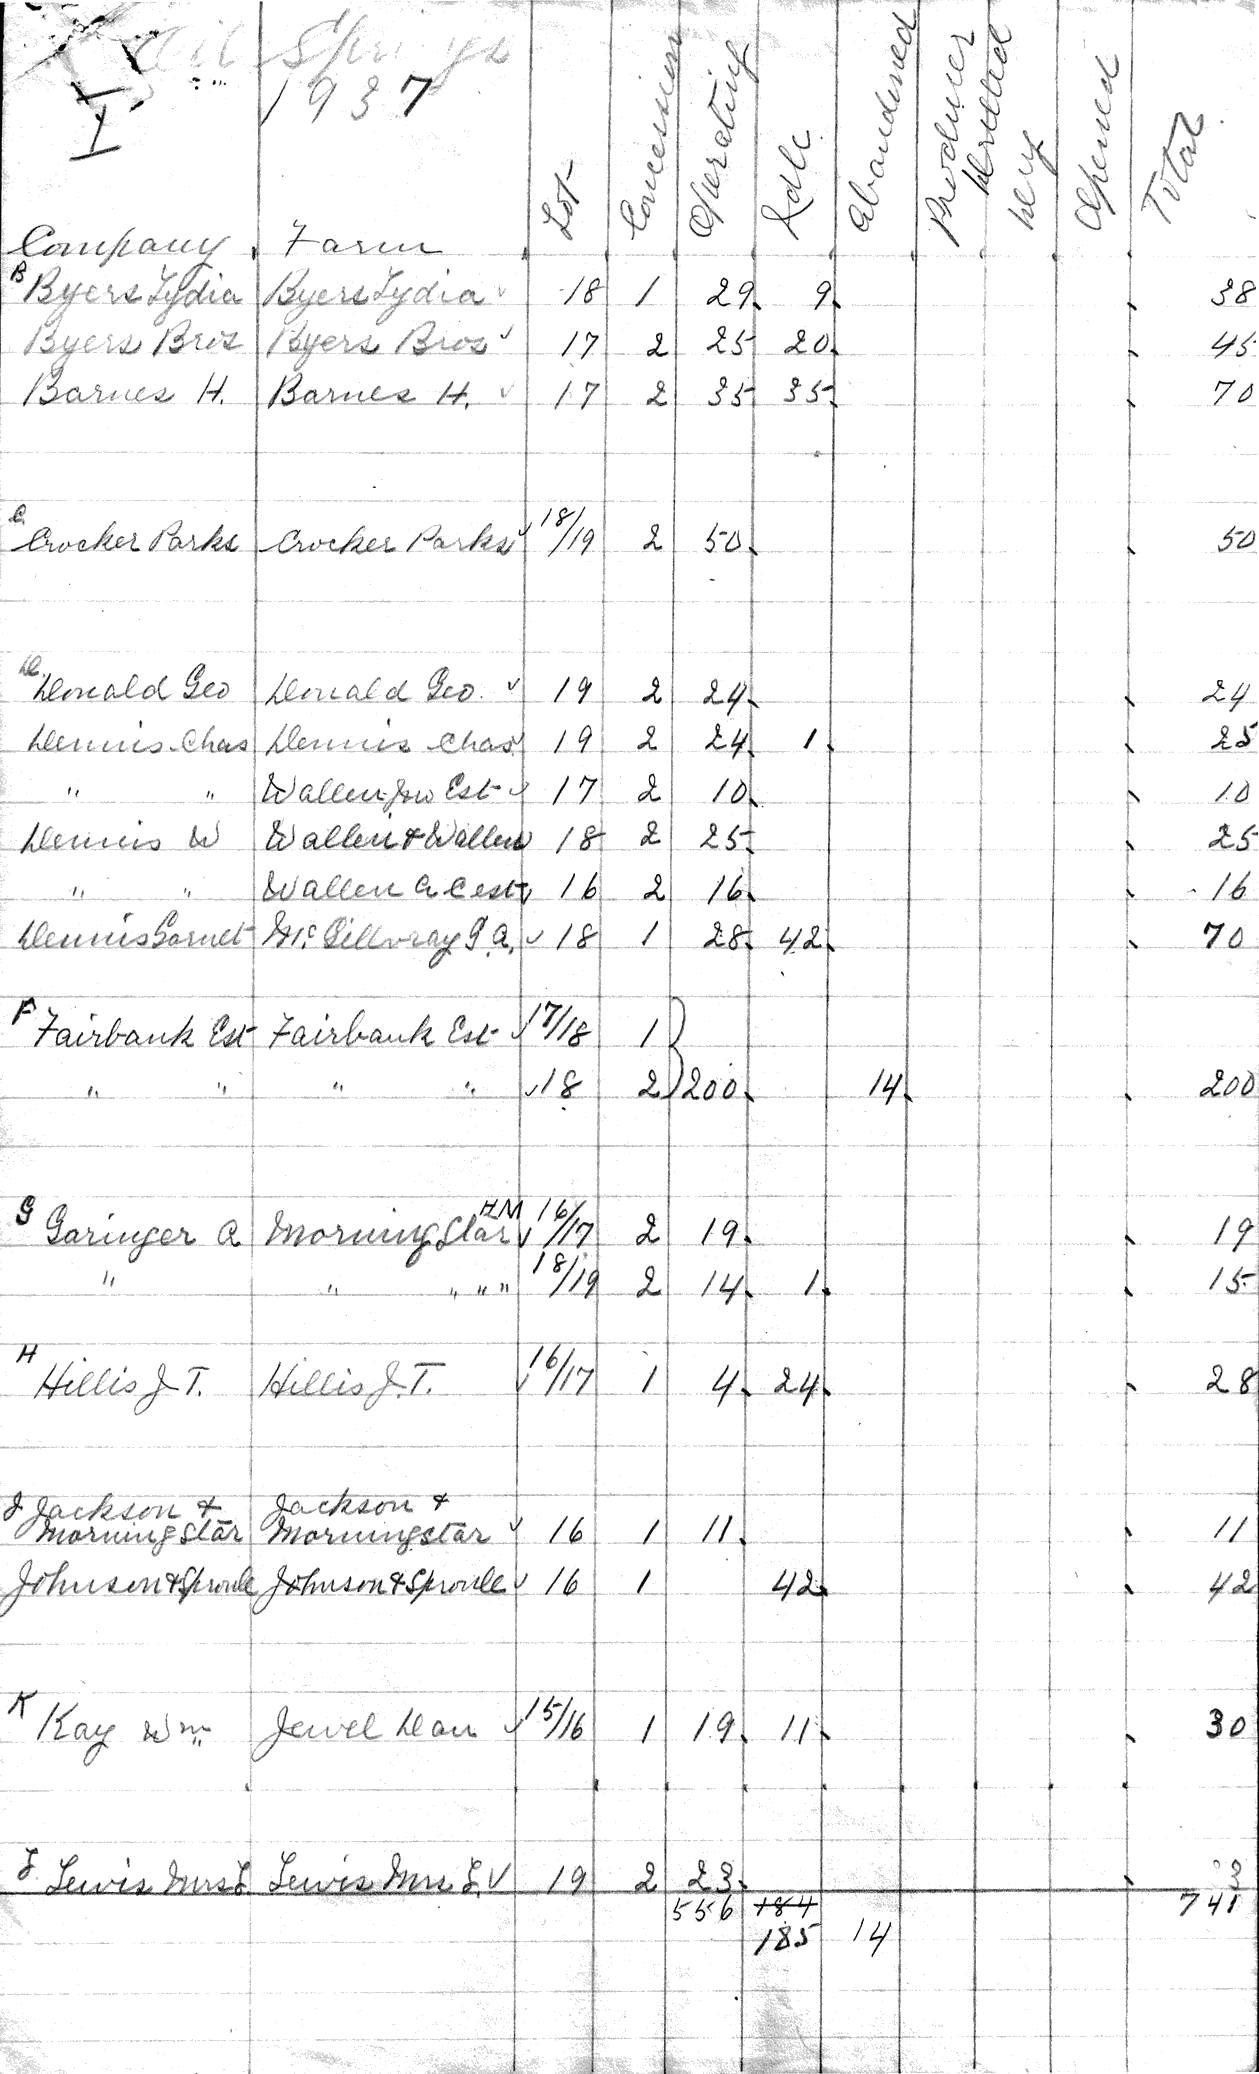 Oil Springs
1937
I
Company Farm Lot Concession Operating Idle Abandoned Producer Drilled Dry Opened Total
B
Byers Lydia Byers Lydia ✓ 18 1 29 9 38
Byers Bros Byers Bros ✓ 17 2 25 20 45
Barnes H. Barnes H. ✓ 17 2 35 35 70
C
Crocker Parks Crocker Parks ✓ 18/19 2 50 50
D
Donald Geo Donald Geo. ✓ 19 2 24 24
Dennis Chas Dennis Chas ✓ 19 2 24 1 25
" " Wallen Jno Est ✓ 17 2 10 10
Dennis W Wallen & Wallen 18 2 25 25
" " Wallen A C est ✓ 16 2 16 16
Dennis Garnet McGillvray G A. ✓ 18 1 28 42 70
F
Fairbank Est Fairbank Est ✓ 17/18 1
" " " " ✓ 18 2 200 14 200
G
Garinger A Morningstar HM ✓ 16/17 2 19 19
" " " " " 18/19 2 14 1 15
H
Hillis J. T. Hillis J. T. ✓ 16/17 1 4 24 28
J
Jackson & Jackson &
Morningstar Morningstar ✓ 16 1 11 11
Johnson & Sproule Johnson & Sproule ✓ 16 1 42 42
K
Kay Wm Jewel Dan ✓ 15/16 1 19 11 30
L
Lewis Mrs L Lewis Mrs L. ✓ 19 2 23 3
556 184 741
185 14